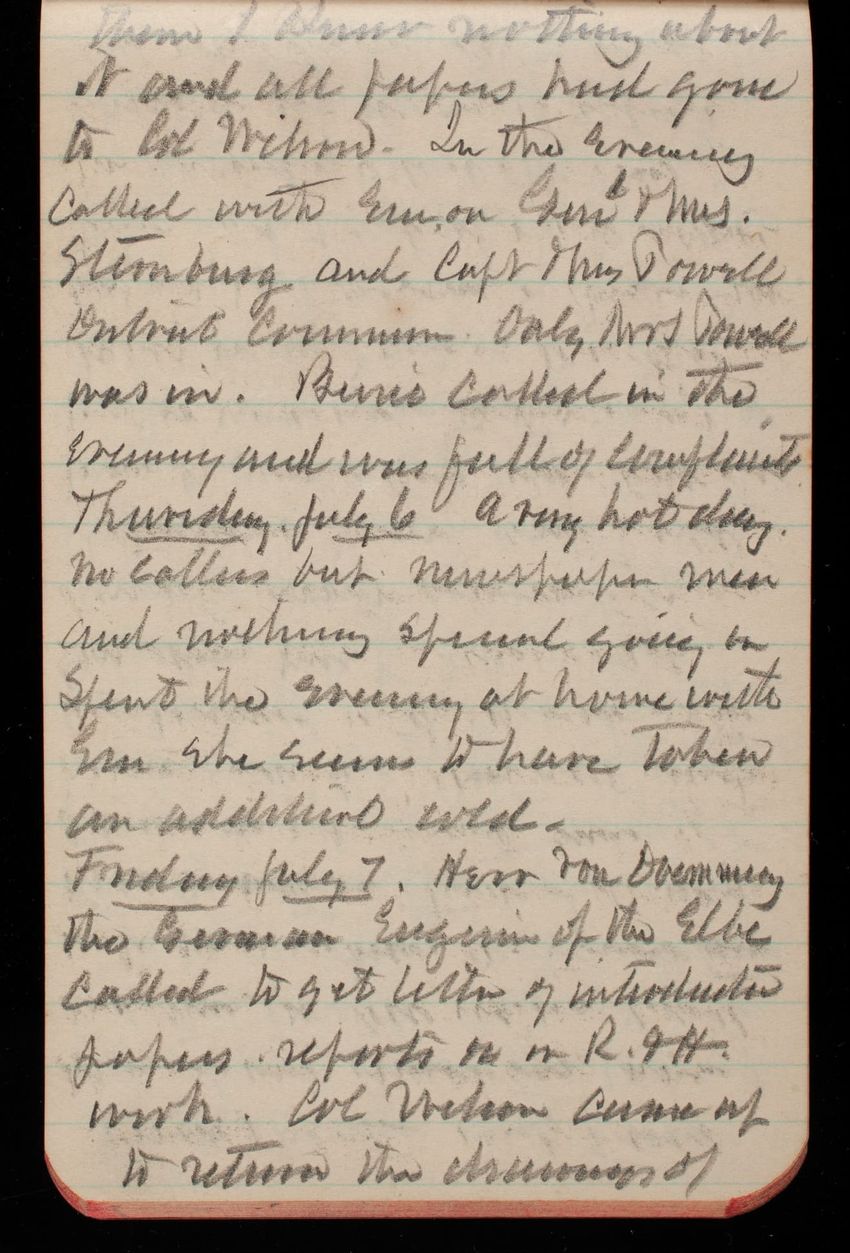 them I knew nothing about
it and all papers had gone
to Col Wilson. In the evening
Called with Em. on Genl & Mrs.
Sternburg and Capt & Mrs Powell
District Commr. Only Mrs Powell
was in. called in the
evening and was full of complaints
Thursday. July 6 A very hot day.
No callers but newspaper men
and nothing special going on
Spent the evening at home with
Em she seems to have taken
an additional cold.
Friday July 7. Herr von Doemming
the German Engineer of the Elbe
Called to get letter of introduction
papers. reports on R. & H.
work. Col Wilson came up
to return the drawings of